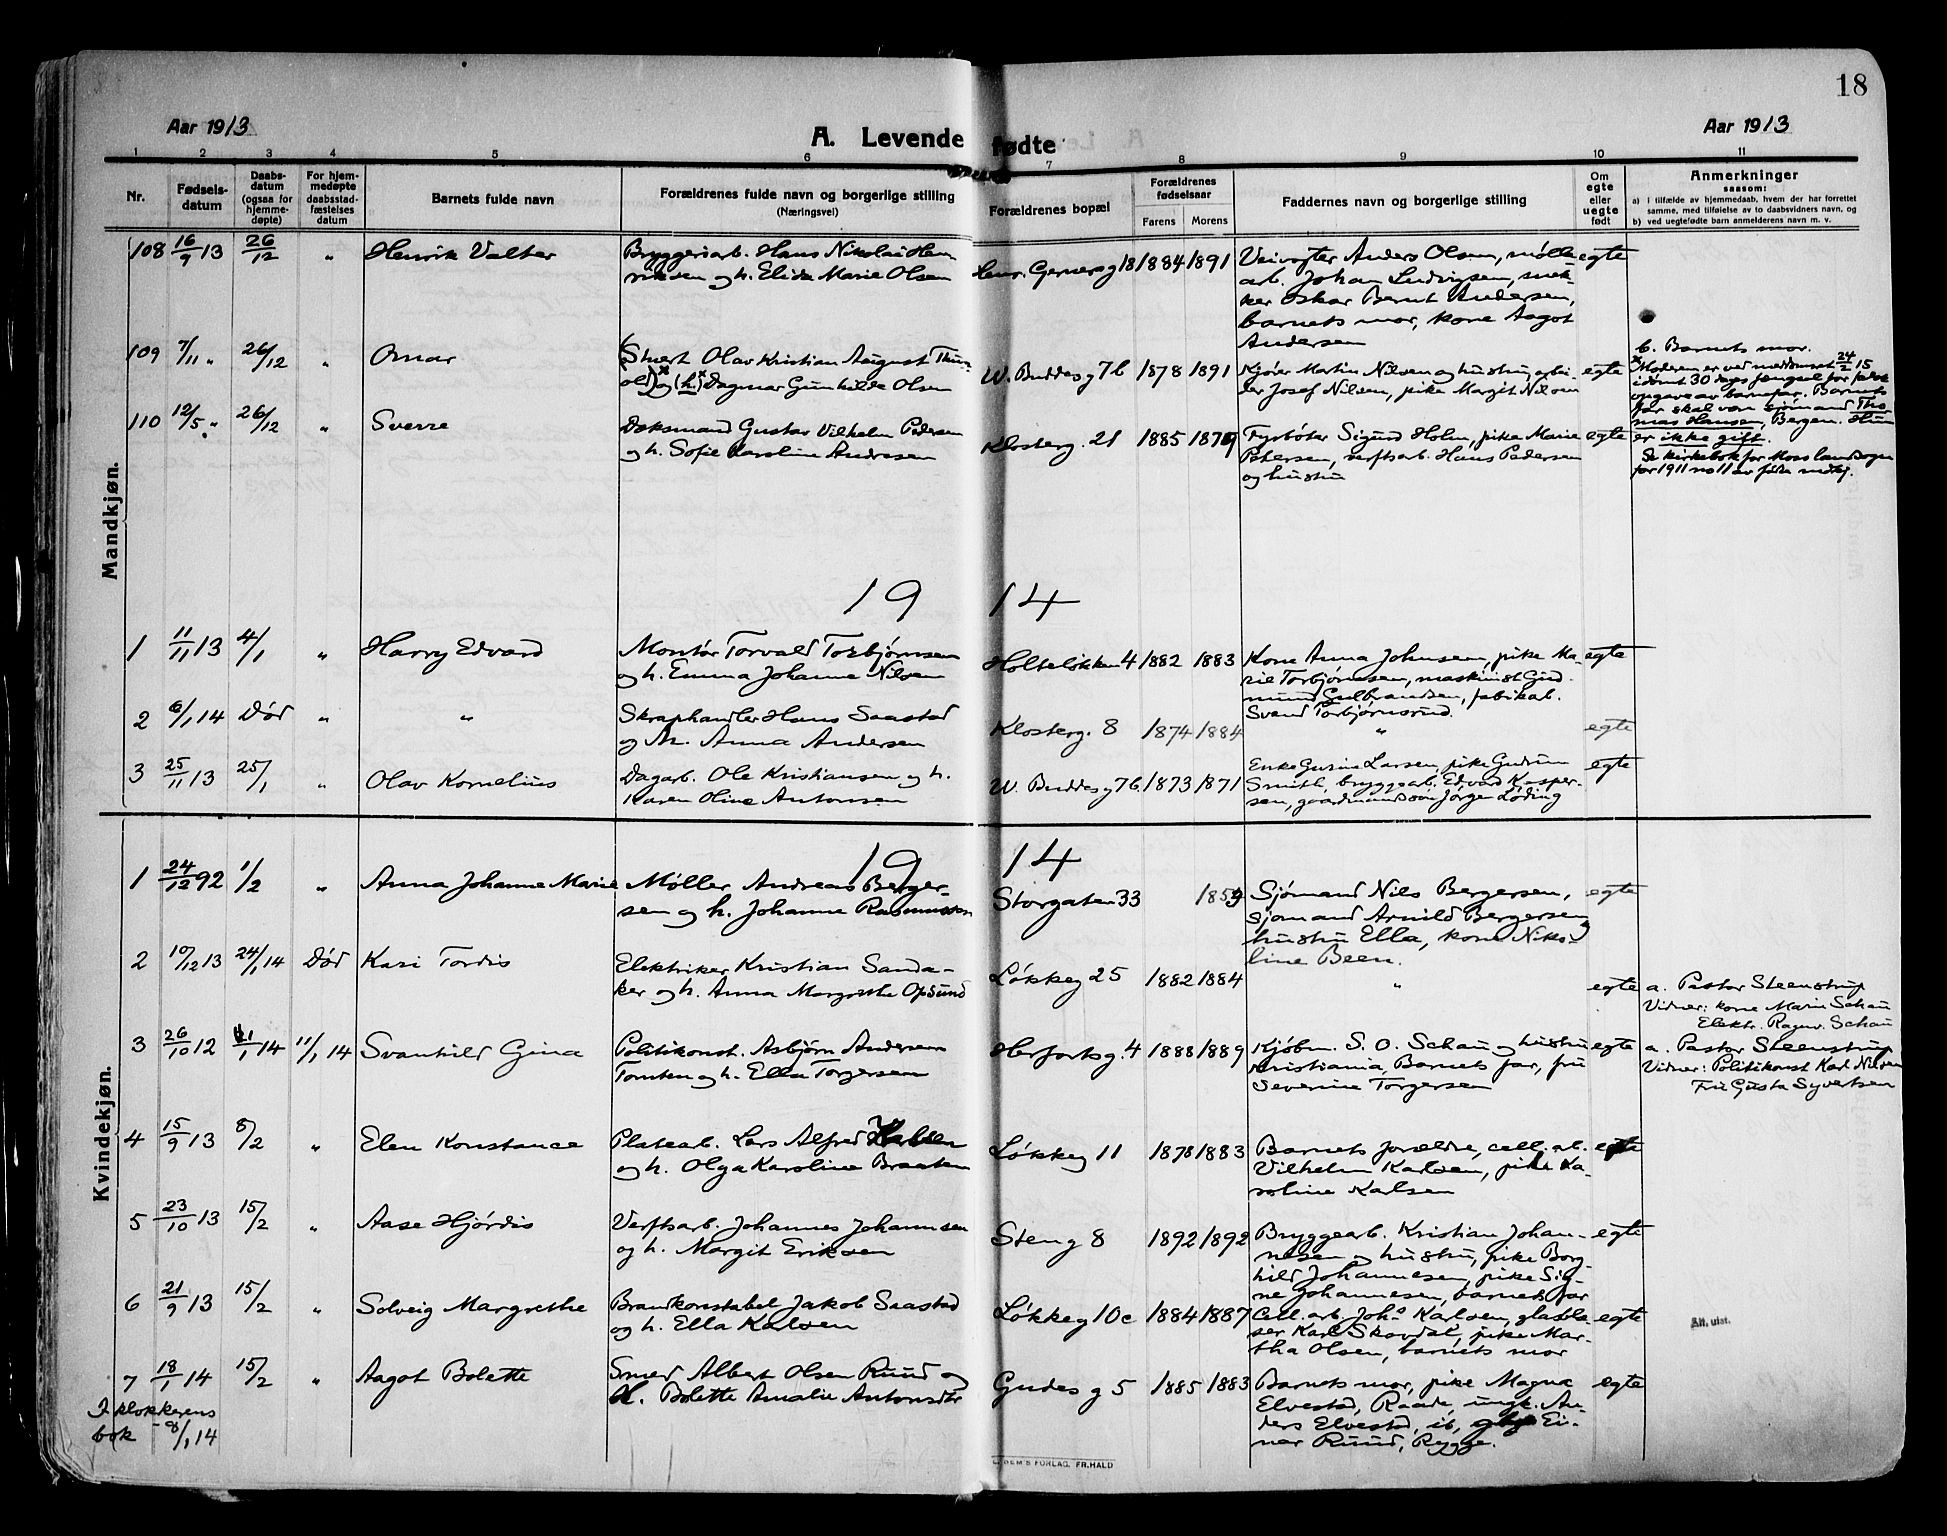 18
Aar 1913
A. Levende fødte
Aar 1913
1 2 3 4 5 6 7 8 9 10 11
Nr.
Fødsels-
datum
Daabs-
datum
(ogsaa for
hjemme-
døpte)
For hjem-
medøpte
daabsstad-
fæstelses
datum
Barnets fulde navn
Forældrenes fulde navn og borgerlige stilling
(Næringsvei)
Forældrenes bopæl
Forældrenes
fødselsaar
Farens
Morens
Faddernes navn og borgerlige stilling
Om
egte
eller
uegte
født
Anmerkninger
saasom:
a) I tilfælde av hjemmedaab, hvem der har forrettet
samme, med tilføielse av to daabsvidners navn, og
b) ved uegtefødte barn anmelderens navn m. v.
Mandkjøn.
108 16/9 13 26/12 " Henrik Valter
Bryggeriarb. Hans Nikolai Hen
riksen og h. Elida Marie Olsen
Henr. Gerners g 18 1884 1891
Veivogter Anders Olsen, mølle
arb. Johan Ludvigsen, snek-
ker Oskar Bernt Andersen,
barnets mor, kone Aagot
Andersen
egte
109 7/11 " 26/12 " Omar
(Stuert Olav Kristian August Thur
old)x og (h.)x Dagmar Gunhilde Olsen
W. Buddes g 7b 1878 1891
Kjører Martin Nilsen og hustru, arbei-
der Josef Nilsen, pike Margit Nilsen
egte
b. Barnets mor.
x Moderen er ved meddomsret 24/2 15
idømt 30 dages fængsel for falsk
opgave av barnefar. Barnets
far skal være sjømand Tho-
mas Hansen, Bergen. Hun
er ikke gift.
Se kirkebok for Moss landsogn
for 1911 no 11 av føde mdkj.
110 12/5 " 26/12 " Sverre
Doksmand Gustav Vilhelm Pedersen
og h. Sofie Karoline Andresen
Klosterg. 21 1885 1879
Fyrbøter Sigurd Holm, pike Marie
Petersen, verftsarb. Hans Pedersen
og hustru
egte
19 14
1 11/11 13 4/1 " Harry Edvard
Montør Torvald Torbjørnsen
og h. Emma Johanne Nilsen
Holteløkken 4 1882 1883
Kone Anna Johnsen, pike Ma-
rie Torbjørnsen, maskinist Gud-
mund Gulbrandsen, fabrikab.
Svend Torbjørnsrud.
egte
2 6/1 14 Død " "
Skraphandler Hans Saastad
og h. Anna Andersen
Klosterg. 8 1874 1884 " egte
3 25/11 13 25/1 " Olav Kornelius
Dagarb. Ole Kristiansen og h.
Karen Oline Antonsen
W. Buddes g 7b 1873 1871
Enke Gusine Larsen, pike Gudrun
Smith, bryggearb. Edvard Kasper-
sen, gaardmandssøn Jørgen Løding
egte
Kvindekjøn.
19 14
1 24/12 92 1/2 " Anna Johanne Marie
Møller Andreas Berger-
sen og h. Johanne Rasmussen
Storgaten 33 1859
Sjømand Nils Bergersen,
sjømand Arnild Bergersen og
hustru Ella, kone Niko-
line Been.
egte
2 10/12 13 24/1 14 Død Kari Tordis
Elektriker Kristian Sanda-
ker og h. Anna Margrethe Opsund
Løkkeg 25 1882 1884 " egte
a. Pastor Steenstrup
Vidner: kone Marie Schau
Elektr. Ragnv. Schau
3 26/10 12 11/1 14 11/1 14 Svanhild Gina
Politikonst. Asbjørn Andersen
Tomten og h. Ella Torgersen
Herfortsg. 4 1888 1889
Kjøbm. S. O. Schau og hustru
Kristiania, Barnets far, fru
Severine Torgersen
egte
a. Pastor Steenstrup
Vidner: Politikonst Karl Nilsen
Fru Gusta Syvertsen
4 15/9 13 8/2 " Elen Konstance
Platearb. Lars Alfred
og h. Olga Karoline Braaten
Løkkeg 11 1878 1883
Barnets forældre, cell. arb.
Vilhelm Karlsen, pike Ka-
roline Karlsen
egte
5 23/10 13 15/2 " Aase Hjørdis
Verftsarb. Johannes Johannsen
og h. Margit Eriksen
Steng 8 1892 1892
Bryggearb. Kristian Johan-
nesen og hustru, pike Borg-
hild Johannesen, pike Sig-
ne Johannesen, barnets far
egte
6 21/9 13 15/2 " Solveig Margrethe
Brandkonstabel Jakob Saastad
og h. Ella Karlsen
Løkkeg 10c 1884 1887
Cell. arb. Johs Karlsen, glasblæ-
ser Karl Skovdal, pike Mar-
tha Olsen, barnets mor
egte
Att. utst.
7 18/1 14 15/2 " Aagot Bolette
Smed Albert Olsen Ruud og
h. Bolette Amalie Antonsdtr
Gudes g 5 1885 1883
Barnets mor, pike Magna
Elvestad, Raade, ungk. An-
ders Elvestad, ib, Ei-
nar Ruud, Rygge.
egte
I klokkerens
bok - 8/1 14
FORLAG, FR. HALD